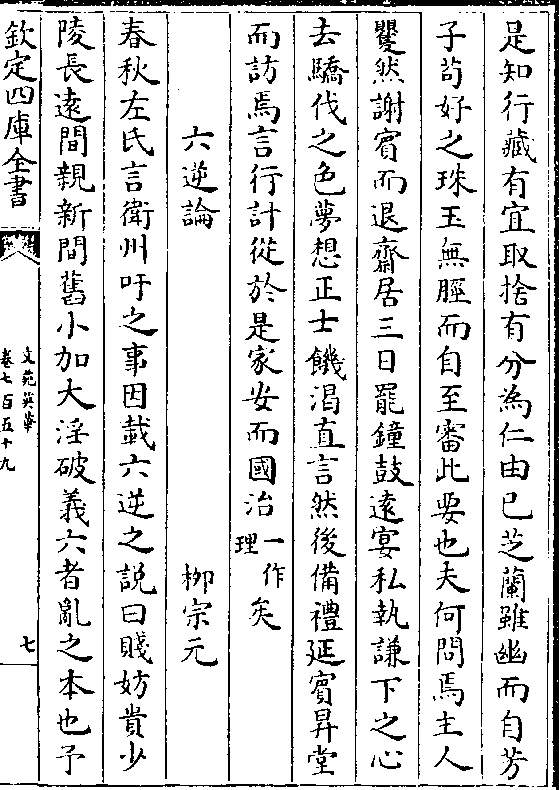 是知行藏有宜取捨有分為仁由已芝蘭雖幽而自芳
子苟好之珠玉無脛而自至審此要也夫何問焉主人
矍然謝賓而退齋居三日罷鐘鼓遠宴私執謙下之心
去驕伐之色夢想正士饑渴直言然後備禮延賓昇堂
而訪焉言行計從於是家安而國治一作理矣
六逆論 柳宗元
春秋左氏言衛州吁之事因載六逆之說曰賤妨貴少
陵長遠間親新間舊小加大淫破義六者亂之本也予
欽定四庫全書
文苑英華
卷七百五十九
七